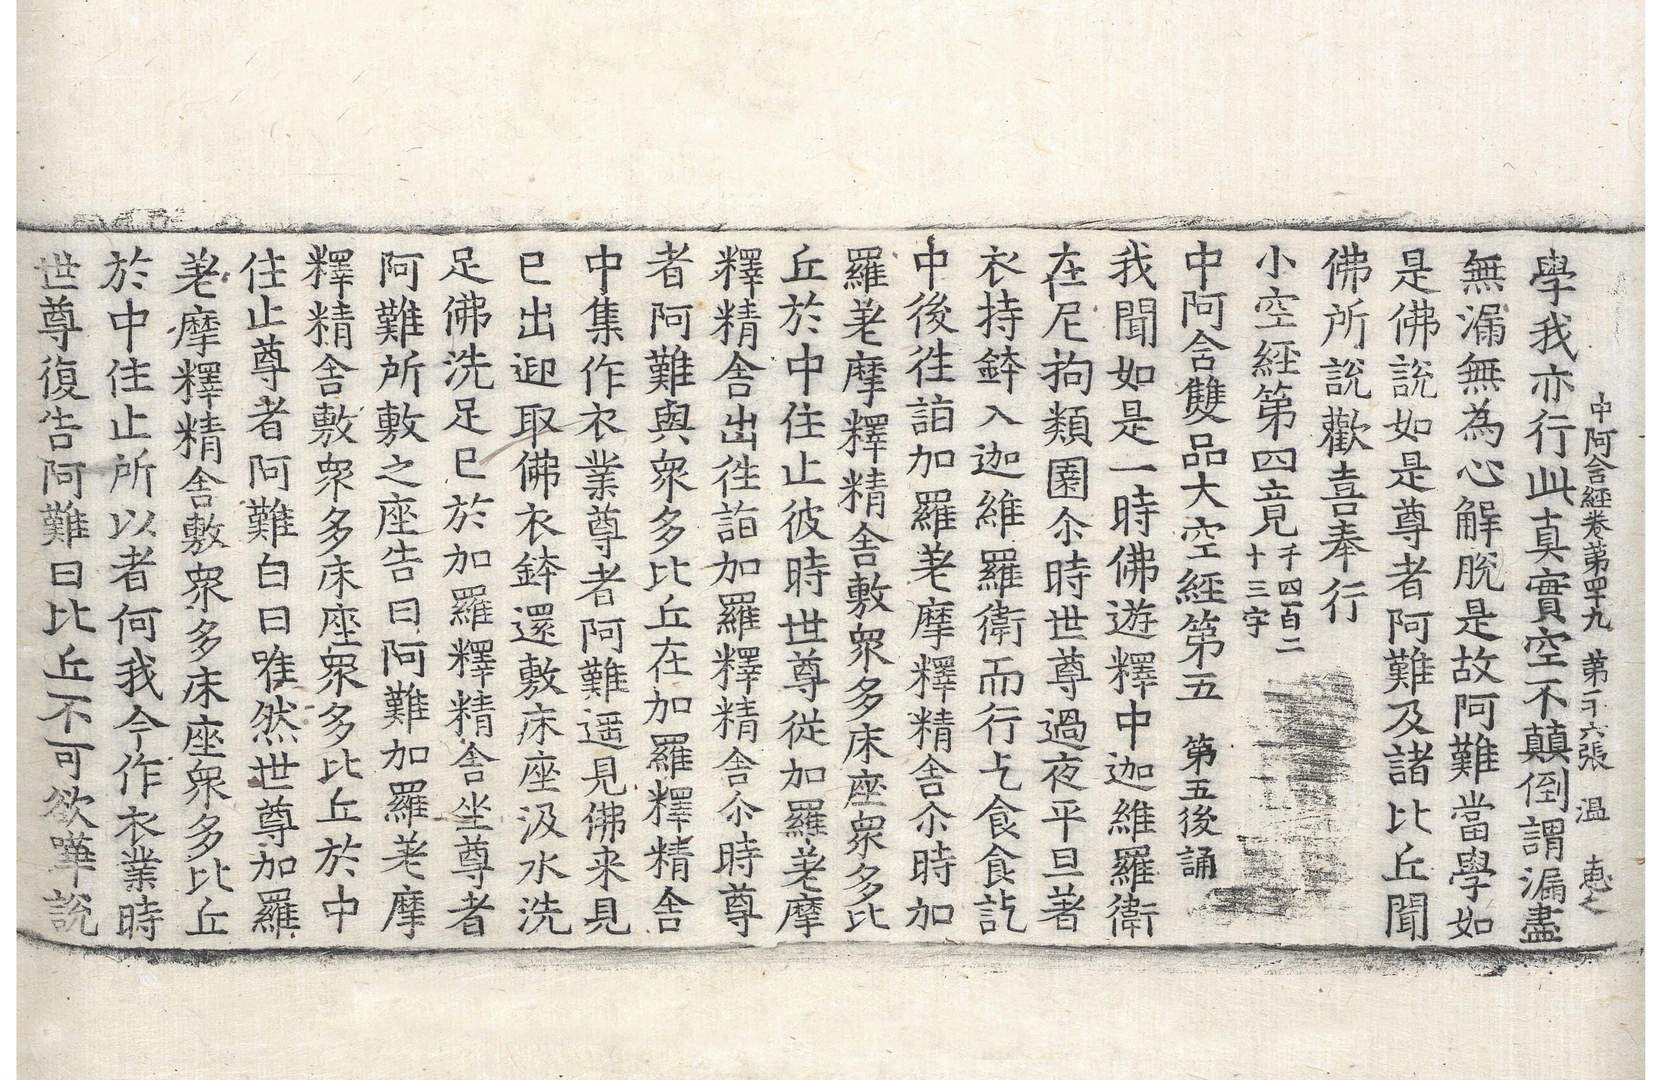 中阿含經卷第四十九 第二十六張 溫 惠之
學我亦行此真實空不顛倒謂漏盡
無漏無為心解脫是故阿難當學如
是佛說如是尊者阿難及諸比丘聞
佛所說歡喜奉行
小空經第四竟千四百二十三字
中阿含雙品大空經第五 第五後誦
我聞如是一時佛遊釋中迦維羅衛
在尼拘類園尒時世尊過夜平旦著
衣持鉢入迦維羅衛而行乞食食訖
中後往詣加羅差摩釋精舍尒時加
羅差摩釋精舍敷衆多床座衆多比
丘於中住止彼時世尊從加羅差摩
釋精舍出往詣加羅釋精舍尒時尊
者阿難與衆多比丘在加羅釋精舍
中集作衣業尊者阿難遥見佛来見
已出迎取佛衣鉢還敷床座汲水洗
足佛洗足已於加羅釋精舍坐尊者
阿難所敷之座告曰阿難加羅差摩
釋精舍敷衆多床座衆多比丘於中
住止尊者阿難白曰唯然世尊加羅
差摩釋精舍敷衆多床座衆多比丘
於中住止所以者何我今作衣業時
世尊復告阿難曰比丘不可欲嘩說